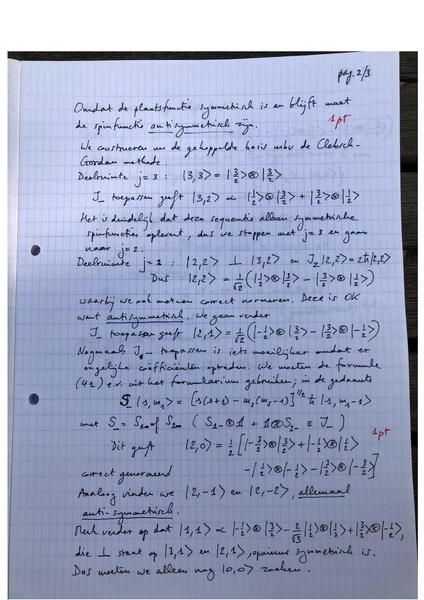 pag. 2/3
Omdat de plaatsfunctie symmetrisch is en blijft moet
de spinfunctie antisymmetrisch zijn. 1pt
We construeren nu de gekoppelde basis mbv de Clebsch-
Gordan methode.
Deelruimte j=3 : |3,3> = |3/2>⊗|3/2>
J_ toepassen geeft |3,2> ∝ |1/2>⊗|3/2> + |3/2>⊗|1/2>
Het is duidelijk dat deze sequentie alleen symmetrische
spinfuncties oplevert, dus we stoppen met j=3 en gaan
naar j=2.
Deelruimte j=2 : |2,2> ⊥ |3,2> en J_z|2,2> = 2ħ|2,2>
Dus |2,2> = 1/√2 (|1/2>⊗|3/2> - |3/2>⊗|1/2>)
waarbij we ook meteen correct normeren. Deze is OK
want antisymmetrisch. We gaan verder
J_ toepassen geeft |2,1> = 1/√2 (|-1/2>⊗|3/2> - |3/2>⊗|-1/2>)
Nogmaals J_ toepassen is iets moeilijker omdat er
ongelijke coëfficiënten optreden. We moeten de formule
(41) e.v. uit het formularium gebruiken, in de gedaante
S_ |s,m_s> = [s(s+1) - m_s(m_s-1)]^1/2 ħ |s,m_s-1>
met S_ = S_1- of S_2- (S_1-⊗1 + 1⊗S_2- ≡ J_)
Dit geeft |2,0> = 1/2 [|-3/2>⊗|3/2> + |-1/2>⊗|1/2> 1pt
correct genormeerd - |1/2>⊗|-1/2> - |3/2>⊗|-3/2>]
Analoog vinden we |2,-1> en |2,-2>, allemaal
anti-symmetrisch.
Merk verder op dat |1,1> ∝ |-1/2>⊗|3/2> - 2/√3 |1/2>⊗|1/2> + |3/2>⊗|-1/2>,
die ⊥ staat op |3,1> en |2,1>, opnieuw symmetrisch is.
Dus moeten we alleen nog |0,0> zoeken.